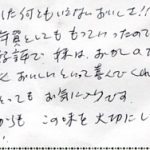 した 何ともいえない おいしさ!!
年賀としても もっていったので
好評で 妹は、おかしの
くおいしいといって喜んでくれ
とっても お気に入りです。
からも この味を大切にし
!